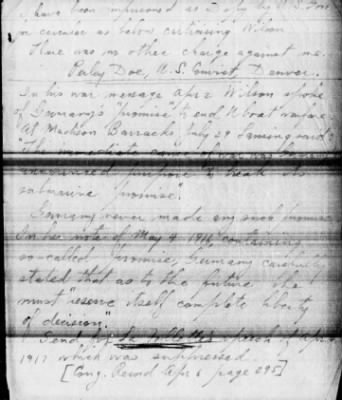 I have been imprisoned as a spy by U.S.
for circular as below criticising Wilson
There was no other charge against me.
Perley Doe, U.S. Convict, Denver.
In his war message Apr 2 Wilson spoke
of Germany's "promise" to end U boat warfare.
At Madison Barracks July 29 Lansing said:
"The immediate cause of war was
announced purpose to break its
submarine 'promise'."
Germany never made any such promise.
In her note of May 4 1916, containing
so-called "promise", Germany carefully
stated that as to the future she
must "reserve itself complete liberty
of decision."
Send for La Follette's speech of Apr 4
1917 which was suppressed.
[Cong. Record Apr 6 page 295]